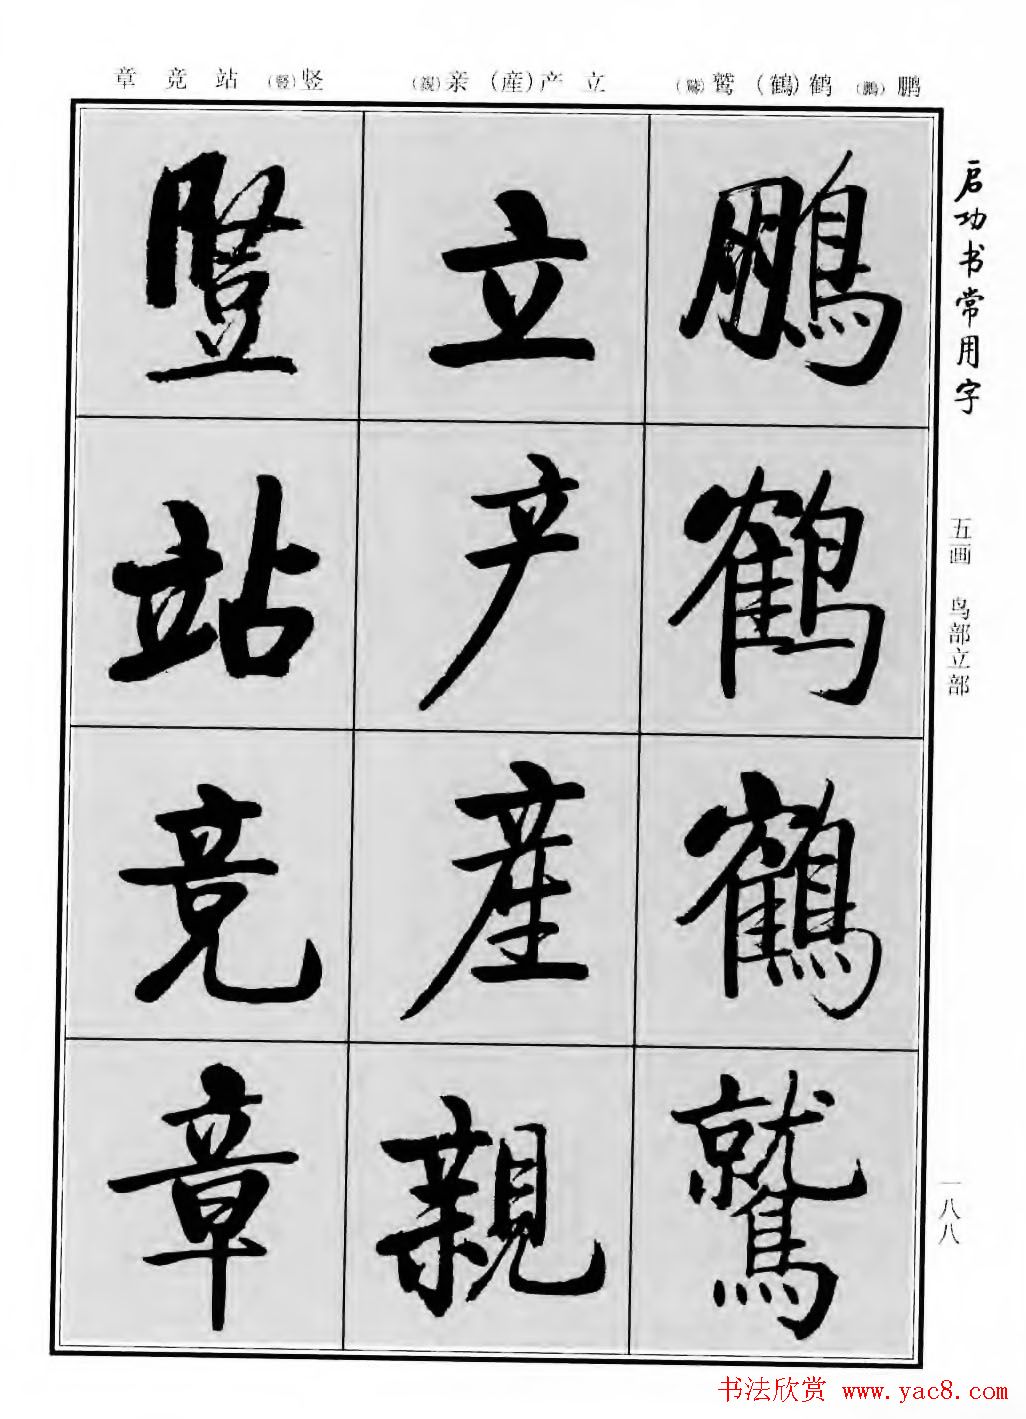 鹏（鵬） 鹤（鶴） 鹫（鷲） 立 产（産） 亲（親） 竖（豎） 站 竞 章
启功书常用字
五画 鸟部立部
一八八
鵬鹤鶴鷲
立产産親
豎站竞章
书法欣赏 www.yac8.com